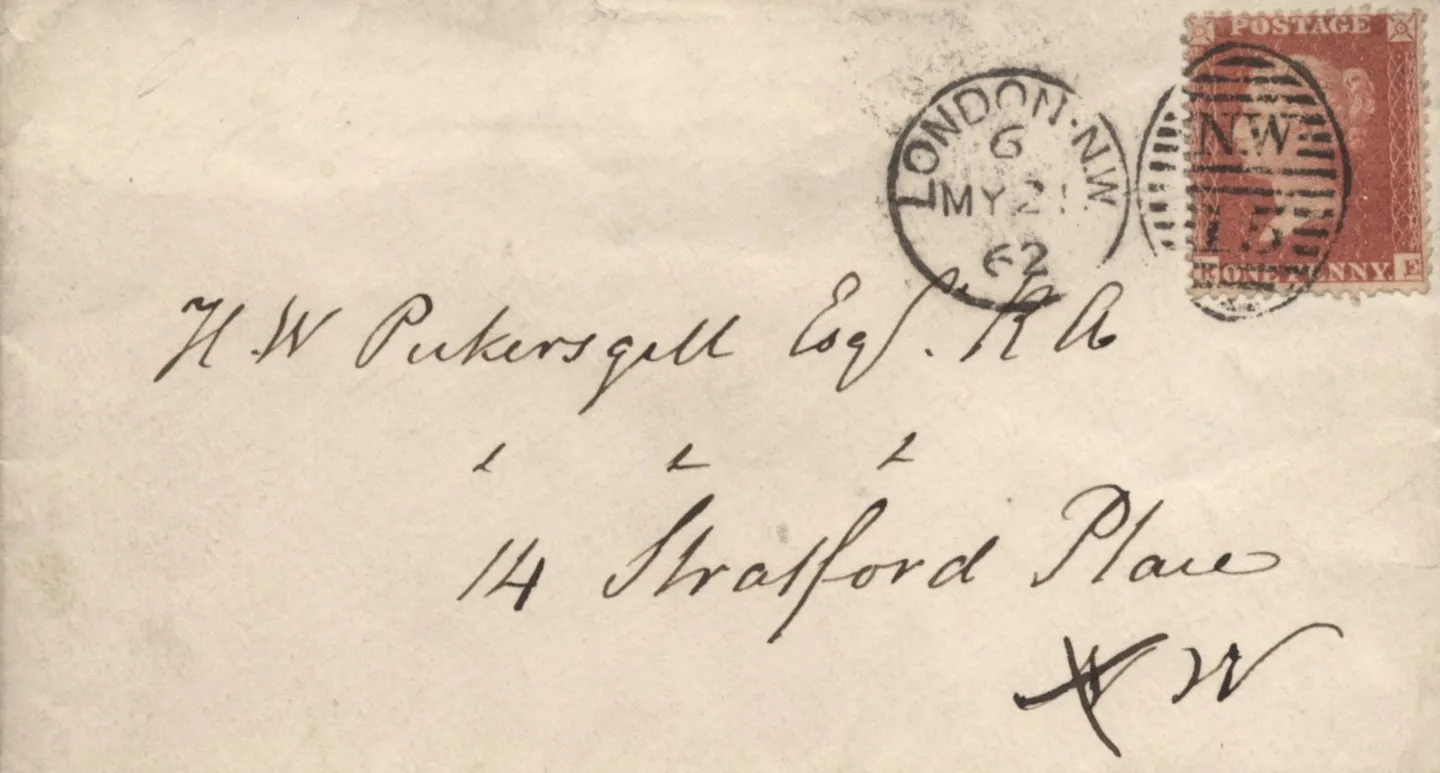 POSTAGE
LONDON·N.W
6
MY 21
62
N.W
15
K ONE PENNY. E
H. W Pickersgill Esqr. R A
14 Stratford Place
W